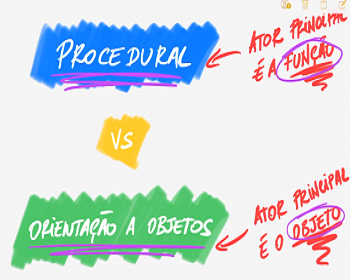 PROCEDURAL
ATOR PRINCIPAL
É A FUNÇÃO
VS
ORIENTAÇÃO A OBJETOS
ATOR PRINCIPAL
É O OBJETO